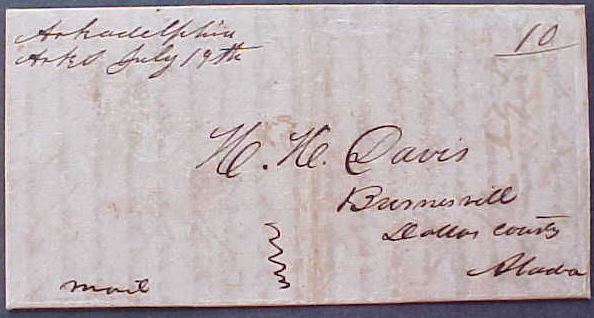 Arkadelphia
Arks July 19th
10
H. H. Davis
Burnesvill
Dallas County
Alaba
mail